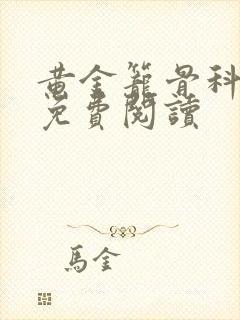 黄金籠骨科
免費閱讀
馬金